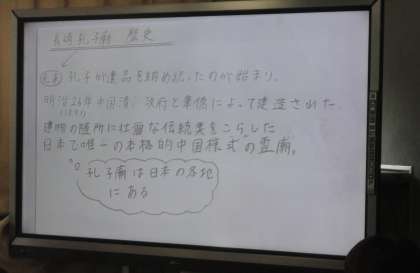 長崎孔子廟 歴史
孔子の遺品を納め祀ったのが始まり。
明治26年中国清朝政府と華僑によって建造された
(1893)
建物の随所に壮麗な伝統美をこらした
日本で唯一の本格的中国様式の霊廟。
孔子廟は日本の各地
にある